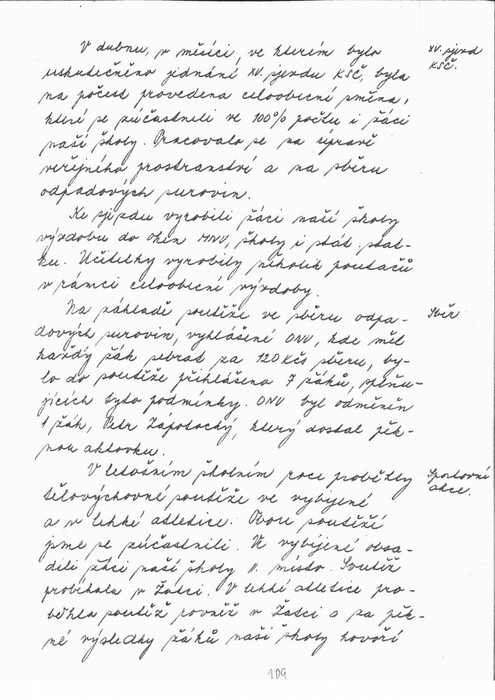 V dubnu, v měsíci, ve kterém bylo
XV. sjezd
uskutečněno jednání XV. sjezdu KSČ, byla
KSČ.
na počest provedena celoobecní směna,
které se zúčastnili ve 100% počtu i žáci
naší školy. Pracovalo se na úpravě
veřejného prostranství a na sběru
odpadových surovin.
Ke sjezdu vyrobili žáci naší školy
výzdobu do oken MNV, školy i stát. stat-
ku. Učitelky vyrobily několik poutačů
v rámci celoobecní výzdoby.
Na základě soutěže ve sběru odpa-
Sběr
dových surovin, vyhlášení ONV, kde měl
každý žák sebrat za 120 Kčs sběru, by-
lo do soutěže přihlášeno 7 žáků, splňu-
jících tyto podmínky. ONV byl odměněn
1 žák, Petr Zápotocký, který dostal pěk-
nou aktovku.
V letošním školním roce proběhly
Sportovní
tělovýchovné soutěže ve vybíjené
akce.
a v lehké atletice. Obou soutěží
jsme se zúčastnili. Ve vybíjené obsa-
dili žáci naší školy II. místo. Soutěž
probíhala v Žatci. V lehké atletice pro-
běhla soutěž rovněž v Žatci a za pěk-
né výsledky žáků naší školy hovoří
109